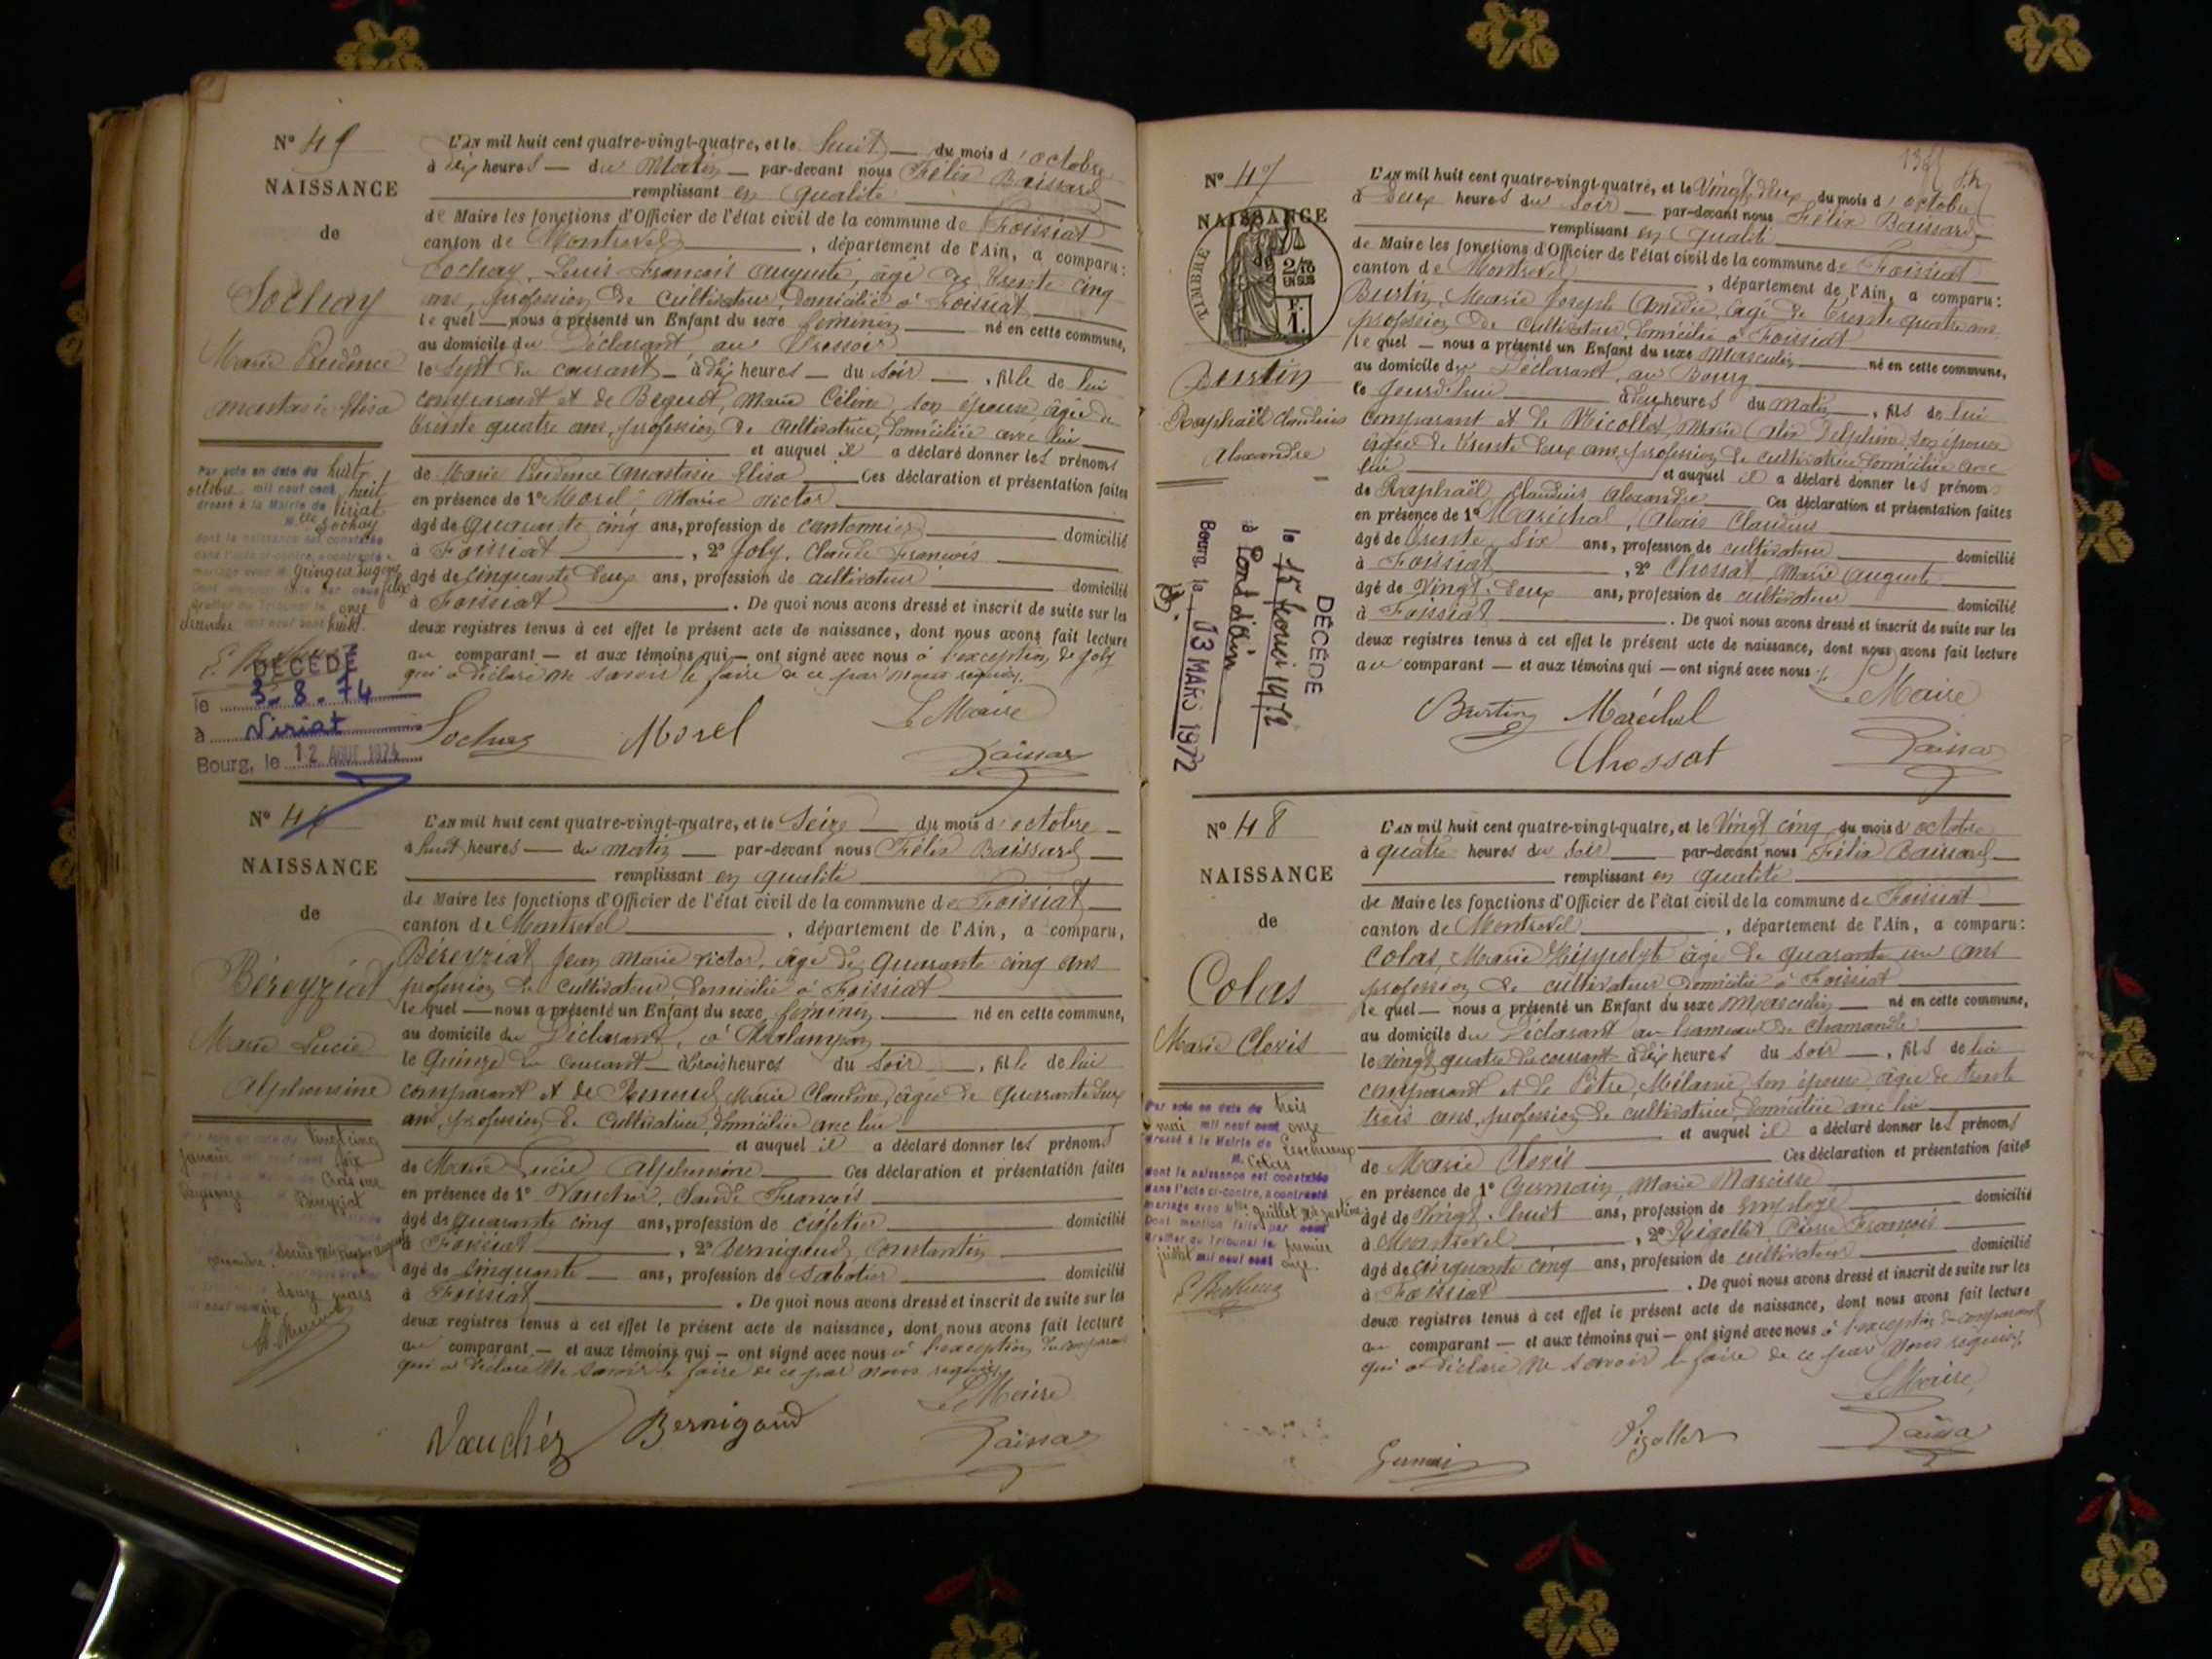 N° 45
NAISSANCE
de
Sochay
Marie Prudence
Anastasie Elisa
L'AN mil huit cent quatre-vingt-quatre, et le huit du mois d'octobre
à dix heures du Matin par-devant nous Félix Baissard
remplissant en qualité
de Maire les fonctions d'Officier de l'état civil de la commune de Foissiat
canton de Montrevel, département de l'Ain, a comparu:
Sochay, Louis François Auguste, âgé de trente cinq
ans, profession de cultivateur, domicilié à Foissiat
lequel nous a présenté un Enfant du sexe féminin né en cette commune,
au domicile du Déclarant au Pressoir
le sept du courant à dix heures du soir, fille de lui
comparant et de Béquet, Marie Céline, son épouse, âgée de
trente quatre ans, profession de cultivatrice, domiciliée avec lui
et auquel il a déclaré donner les prénoms
de Marie Prudence Anastasie Elisa Ces déclaration et présentation faites
en présence de 1° Morel, Marie Victor
âgé de quarante cinq ans, profession de cantonnier domicilié
à Foissiat, 2° Joly, Claude François
âgé de cinquante deux ans, profession de cultivateur domicilié
à Foissiat. De quoi nous avons dressé et inscrit de suite sur les
deux registres tenus à cet effet le présent acte de naissance, dont nous avons fait lecture
au comparant et aux témoins qui ont signé avec nous à l'exception de Joly
qui a déclaré ne savoir le faire de ce par nous requis.
Sochay Morel Le Maire
Baissard
Par acte en date du huit
octobre mil neuf cent huit
dressé à la Mairie de Viriat
Mlle Sochay
dont la naissance est constatée
dans l'acte ci-contre, a contracté
mariage avec M
DÉCÉDÉ
le 3.8.74
à Viriat
Bourg, le 12 AOUT 1974
N° 46
NAISSANCE
de
Béreyziat
Marie Lucie
Alphonsine
L'AN mil huit cent quatre-vingt-quatre, et le Seize du mois d'octobre
à huit heures du matin par-devant nous Félix Baissard
remplissant en qualité
de Maire les fonctions d'Officier de l'état civil de la commune de Foissiat
canton de Montrevel, département de l'Ain, a comparu,
Béreyziat Jean Marie Victor, âgé de quarante cinq ans
profession de cultivateur, domicilié à Foissiat
lequel nous a présenté un Enfant du sexe féminin né en cette commune,
au domicile du Déclarant, à
le Quinze du courant à trois heures du soir, fille de lui
comparant et de Renaud, Marie Claudine, âgée de quarante deux
ans, profession de cultivatrice, domiciliée avec lui
et auquel il a déclaré donner les prénoms
de Marie Lucie Alphonsine Ces déclaration et présentation faites
en présence de 1° Vaucher, Claude François
âgé de quarante cinq ans, profession de cafetier domicilié
à Foissiat, 2° Bernigaud, Constantin
âgé de cinquante ans, profession de sabotier domicilié
à Foissiat. De quoi nous avons dressé et inscrit de suite sur les
deux registres tenus à cet effet le présent acte de naissance, dont nous avons fait lecture
au comparant et aux témoins qui ont signé avec nous à l'exception du comparant
qui a déclaré ne savoir le faire de ce par nous requis.
Le Maire
Vauchéz Bernigaud Baissard
vingt cinq
janvier
N° 47
NAISSANCE
de
TIMBRE
2/10
EN SUS
F.
1.
Burtin
Raphaël Claudius
Alexandre
L'AN mil huit cent quatre-vingt-quatre, et le Vingt deux du mois d'octobre
à Deux heures du soir par-devant nous Félix Baissard
remplissant en qualité
de Maire les fonctions d'Officier de l'état civil de la commune de Foissiat
canton de Montrevel, département de l'Ain, a comparu:
Burtin, Marie Joseph Amédée, âgé de trente quatre ans
profession de cultivateur, domicilié à Foissiat
lequel nous a présenté un Enfant du sexe Masculin né en cette commune,
au domicile du Déclarant, au Bourg
le jourd'hui à deux heures du Matin, fils de lui
comparant et de Nicollet, Marie Alix Delphine, son épouse
âgée de trente deux ans, profession de cultivatrice, domiciliée avec
lui et auquel il a déclaré donner les prénoms
de Raphaël Claudius Alexandre Ces déclaration et présentation faites
en présence de 1° Maréchal, Alexis Claudius
âgé de trente six ans, profession de cultivateur domicilié
à Foissiat, 2° Chossat, Marie Auguste
âgé de Vingt deux ans, profession de cultivateur domicilié
à Foissiat. De quoi nous avons dressé et inscrit de suite sur les
deux registres tenus à cet effet le présent acte de naissance, dont nous avons fait lecture
au comparant et aux témoins qui ont signé avec nous
Burtin Maréchal Le Maire
Chossat Baissard
DÉCÉDÉ
le 15 février 1972
à Pont d'Ain
Bourg, le 03 MARS 1972
N° 48
NAISSANCE
de
Colas
Marie Clovis
L'AN mil huit cent quatre-vingt-quatre, et le Vingt cinq du mois d'octobre
à quatre heures du soir par-devant nous Félix Baissard
remplissant en qualité
de Maire les fonctions d'Officier de l'état civil de la commune de Foissiat
canton de Montrevel, département de l'Ain, a comparu:
Colas, Marie Hippolyte âgé de quarante un ans
profession de cultivateur, domicilié à Foissiat
lequel nous a présenté un Enfant du sexe Masculin né en cette commune,
au domicile du Déclarant au hameau de Chamandre
le vingt quatre du courant à dix heures du soir, fils de lui
comparant et de Pître, Mélanie, son épouse âgée de trente
trois ans, profession de cultivatrice, domiciliée avec lui
et auquel il a déclaré donner les prénoms
de Marie Clovis Ces déclaration et présentation faites
en présence de 1° Germain, Marie Narcisse
âgé de Vingt huit ans, profession de employé domicilié
à Montrevel, 2° Rigollet Pierre François
âgé de cinquante cinq ans, profession de cultivateur domicilié
à Foissiat. De quoi nous avons dressé et inscrit de suite sur les
deux registres tenus à cet effet le présent acte de naissance, dont nous avons fait lecture
au comparant et aux témoins qui ont signé avec nous à l'exception du comparant
qui a déclaré ne savoir le faire de ce par nous requis.
Le Maire
Germain Rigollet Baissard
Par acte en date du trois
mai mil neuf cent onze
dressé à la Mairie de Lescheroux
M. Colas
dont la naissance est constatée
dans l'acte ci-contre, a contracté
mariage avec Mlle Guillet
Dont mention faite par nous
Greffier du Tribunal le premier
juillet mil neuf cent onze.